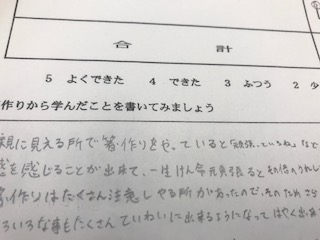 合計
5 よくできた 4 できた 3 ふつう 2 少
作りから学んだことを書いてみましょう
親に見える所で箸作りをやっていると「頑張っているね」など
感を感じることが出来て、一生けん命頑張るとその倍のうれし
箸作りはたくさん注意しやる所があったので、そのため
ろいろな事もたくさんていねいに出来るようになって はやく出来